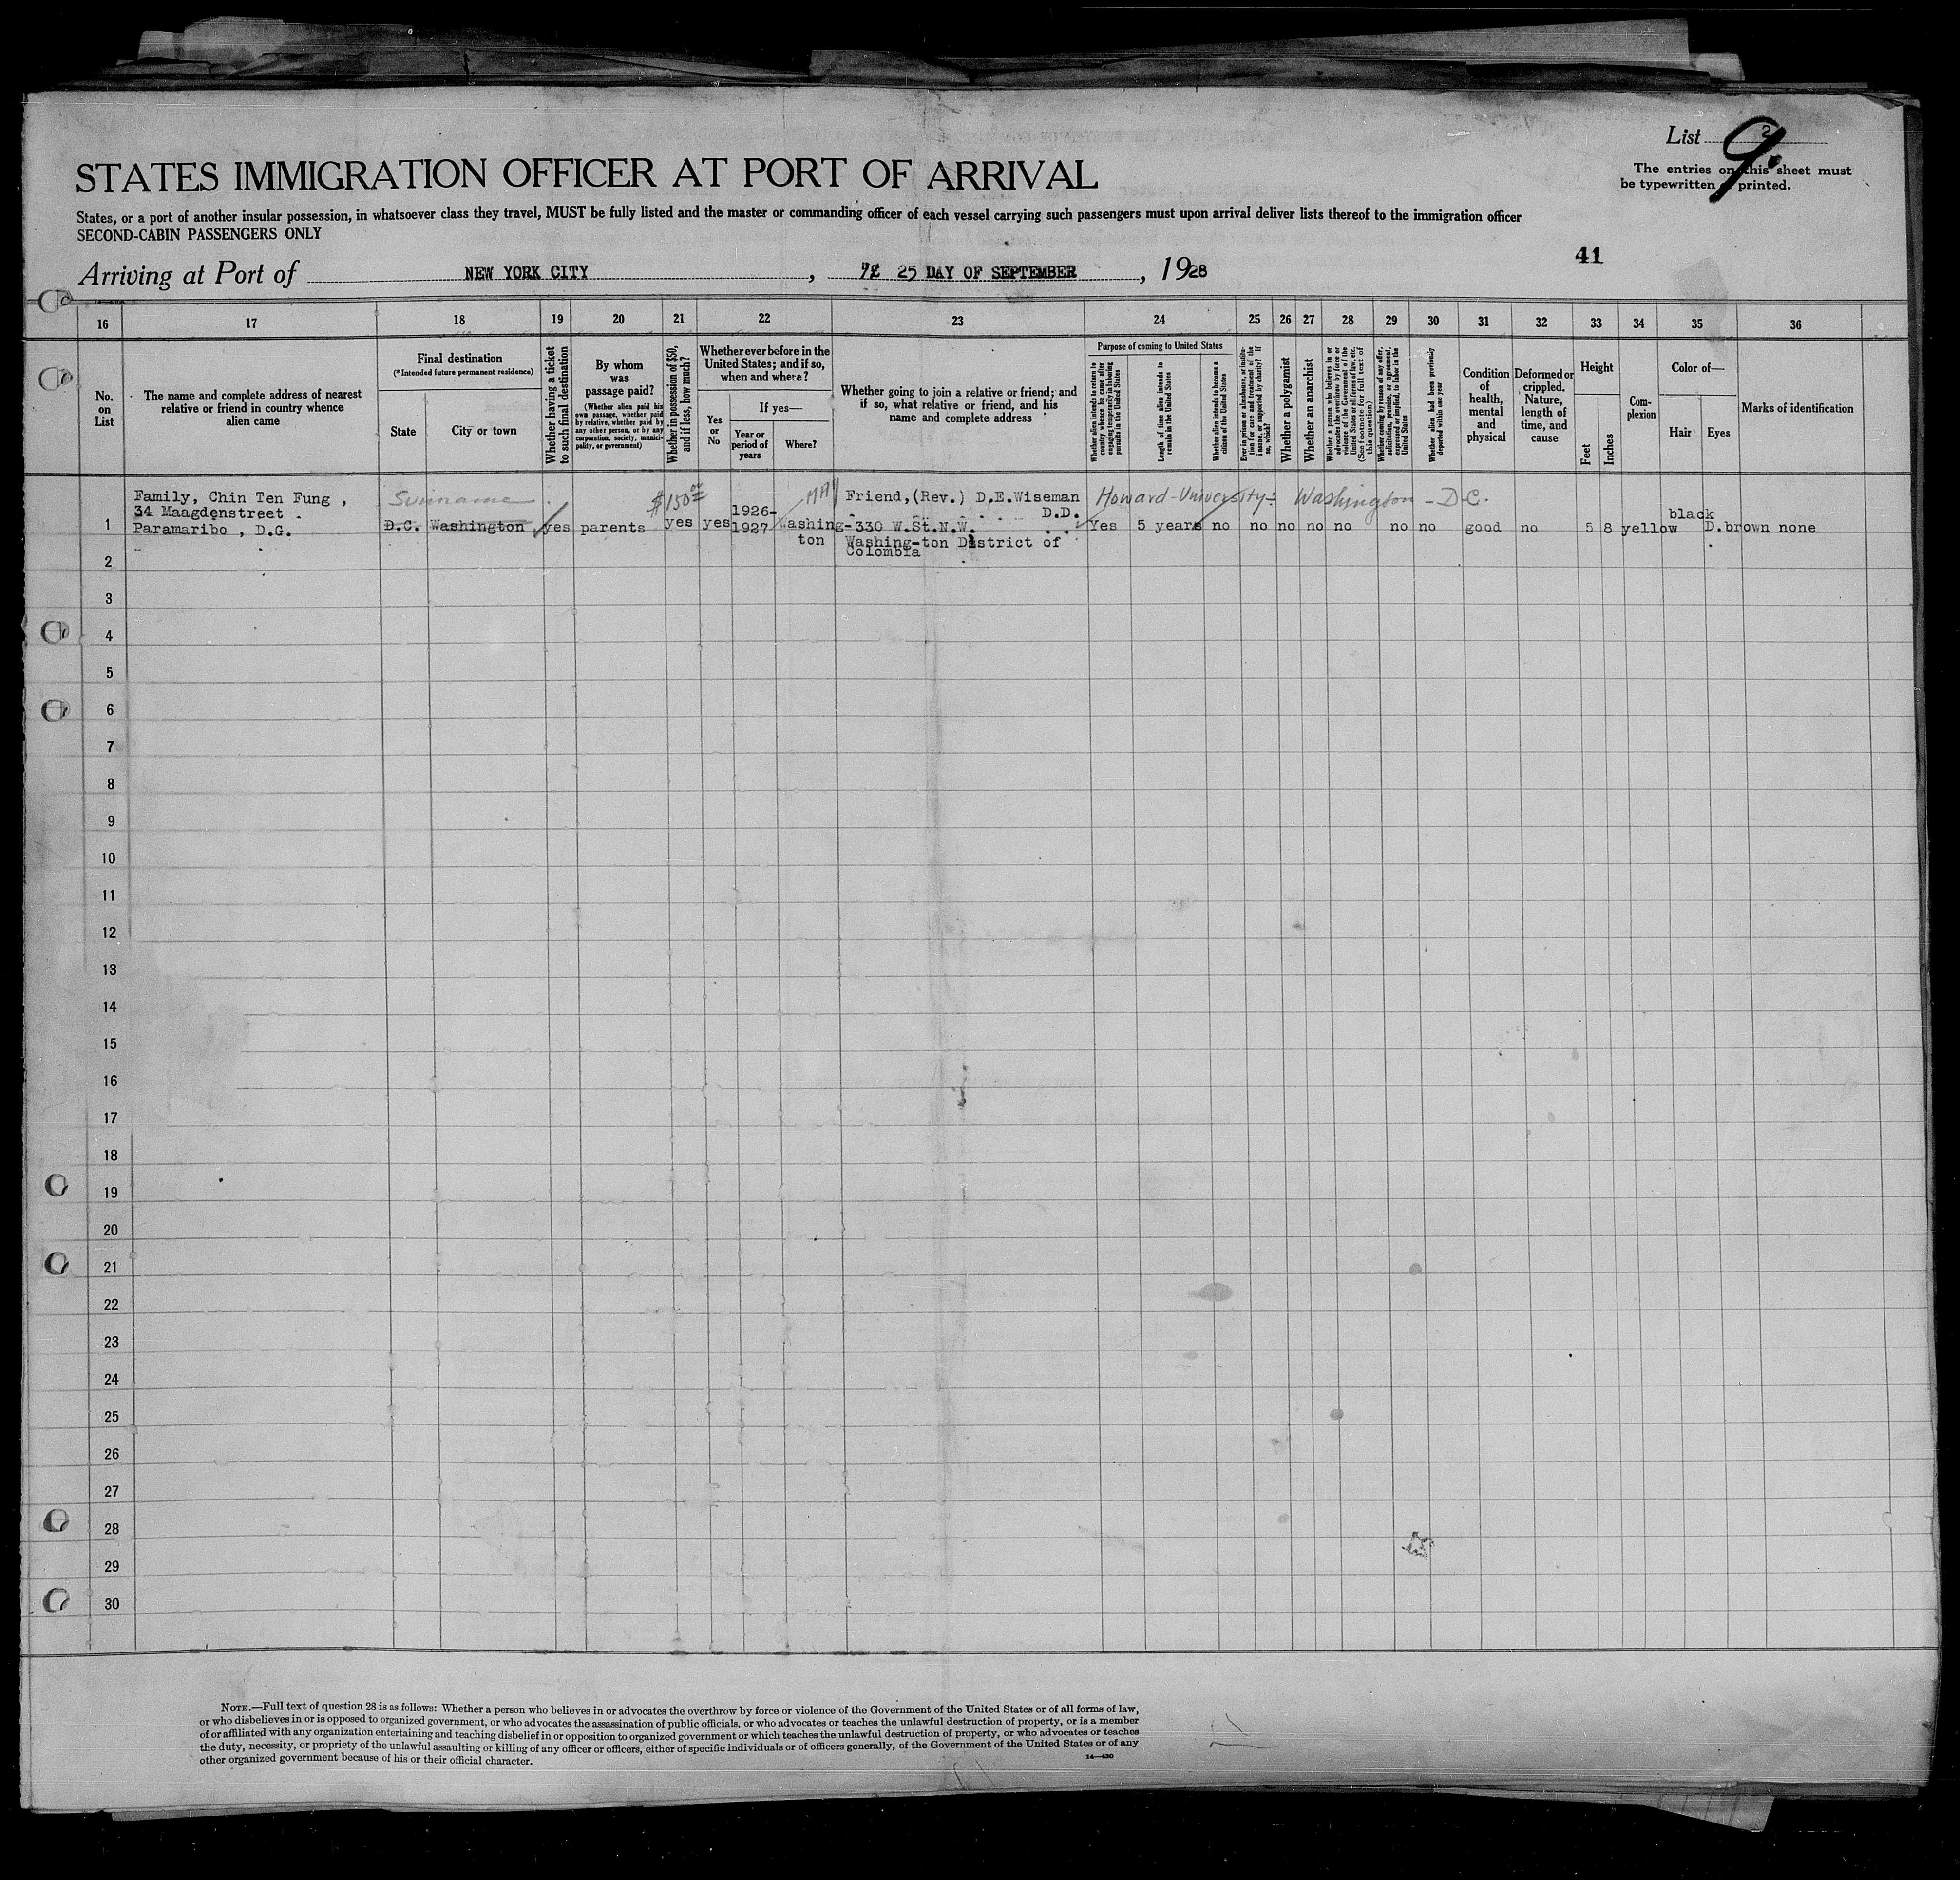 List 2
9.
The entries on this sheet must
be typewritten or printed.
STATES IMMIGRATION OFFICER AT PORT OF ARRIVAL
States, or a port of another insular possession, in whatsoever class they travel, MUST be fully listed and the master or commanding officer of each vessel carrying such passengers must upon arrival deliver lists thereof to the immigration officer
SECOND-CABIN PASSENGERS ONLY
41
Arriving at Port of NEW YORK CITY, 25 DAY OF SEPTEMBER, 1928
16 17 18 19 20 21 22 23 24 25 26 27 28 29 30 31 32 33 34 35 36
No.
on
List
The name and complete address of nearest
relative or friend in country whence
alien came
Final destination
(*Intended future permanent residence)
State
City or town
Whether having a ticket
to such final destination
By whom
was
passage paid?
(Whether alien paid his
own passage, whether paid
by relative, whether paid by
any other person, or by any
corporation, society, munici-
pality, or government)
Whether in possession of $50,
and if less, how much?
Whether ever before in the
United States; and if so,
when and where?
Yes
or
No
If yes—
Year or
period of
years
Where?
Whether going to join a relative or friend; and
if so, what relative or friend, and his
name and complete address
Purpose of coming to United States
Whether alien intends to return to
country whence he came after
engaging temporarily in laboring
pursuits in the United States
Length of time alien intends to
remain in the United States
Whether alien intends to become a
citizen of the United States
Ever in prison or almshouse, or institu-
tion for care and treatment of the
insane, or supported by charity? If
so, which?
Whether a polygamist
Whether an anarchist
Whether a person who believes in or
advocates the overthrow by force or
violence of the Government of the
United States or all forms of law, etc.
(See footnote for full text of
this question)
Whether coming by reason of any offer,
solicitation, promise, or agreement,
expressed or implied, to labor in the
United States
Whether alien had been previously
deported within one year
Condition
of
health,
mental
and
physical
Deformed or
crippled.
Nature,
length of
time, and
cause
Height
Feet
Inches
Com-
plexion
Color of—
Hair
Eyes
Marks of identification
Family, Chin Ten Fung ,
34 Maagdenstreet .
Paramaribo , D.G.
Suriname.
D.C. Washington
yes
parents
$150 00
yes
yes
1926-
1927
MAY
Washing-
ton
Friend,(Rev.) D.E.Wiseman
D.D.
330 W.St.N.W.
Washing-ton District of
Colombia
Howard-University- Washington-D.C.
Yes 5 years no no no no no no no good no 5 8 yellow black D.brown none
1
2
3
4
5
6
7
8
9
10
11
12
13
14
15
16
17
18
19
20
21
22
23
24
25
26
27
28
29
30
NOTE.—Full text of question 28 is as follows: Whether a person who believes in or advocates the overthrow by force or violence of the Government of the United States or of all forms of law,
or who disbelieves in or is opposed to organized government, or who advocates the assassination of public officials, or who advocates or teaches the unlawful destruction of property, or is a member
of or affiliated with any organization entertaining and teaching disbelief in or opposition to organized government or which teaches the unlawful destruction of property, or who advocates or teaches
the duty, necessity, or propriety of the unlawful assaulting or killing of any officer or officers, either of specific individuals or of officers generally, of the Government of the United States or of any
other organized government because of his or their official character.
14—430